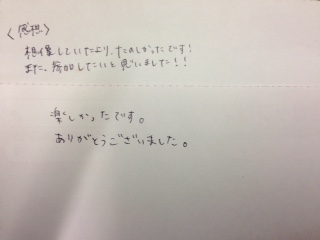 〈感想〉
想像していたより、たのしかったです！
また、参加したいと思いました！！
楽しかったです。
ありがとうございました。